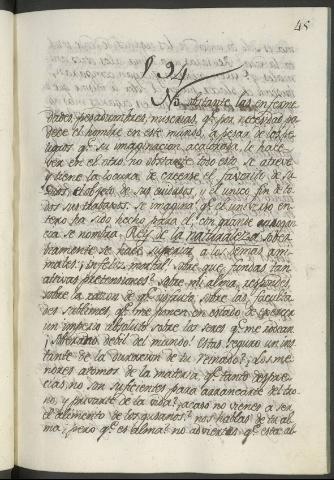 45
§ 94
No obstante las enferme
dades, pesadumbres, miserias, qe. por necesidad pa
dece el hombre en este mundo, la pesar de los pe
ligros qe. su imaginacion acalorada, le hace
ver en el otro no obstante todo esto se atreve
y tiene la locura de creerse el favorito de su
Dios, el objeto de sus cuidados, y el unico fin de to
dos sus trabajos. Se imagina qe. el universo en
tero ha sido hecho para el, con grande arrogan
cia se nombra Rey de la naturaleza, sober
viamente se hace superior a los demas ani
males; infeliz mortal! sobre que fundas tan
altivas pretensiones? sobre mi alma, respondes,
sobre la razon de qe. disfruto, sobre las faculta
des sublimes, qe. me ponen en estado de ejercer
un imperio absoluto sobre los seres qe. me rodean
¡Soberano debil del mundo! Estas seguro un ins
tante de la duracion de tu reinado? ¿Los me
nores atomos de la materia, qe. tanto despre
cias, no son suficientes para arrancarte del tro
no, y privarte de la vida? ¿acaso no vienes a ser
el alimento de los gusanos? nos hablas de tu al
ma; ¿pero qe. es alma? no adviertes, qe. esta al